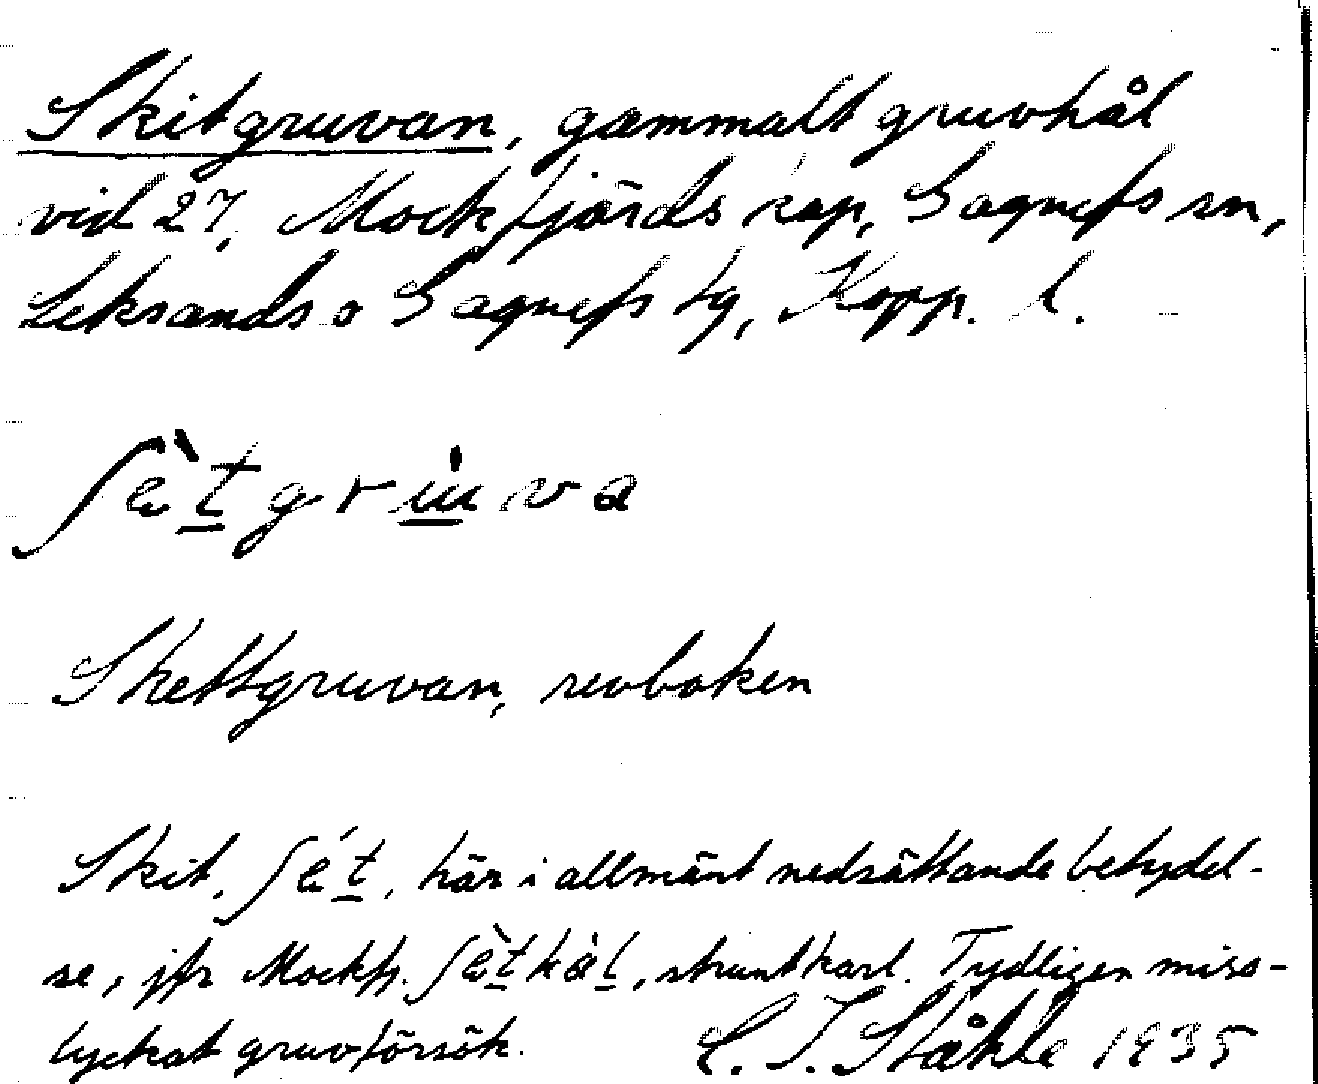 Skitgruvan, gammalt gruvhål
vid 27, Mockfjärds kap, Gagnefs sn,
Leksands o Gagnefs tg, Kopp. l.
ʃèt gru̇va
Skettgruvan, revboken
Skit, ʃét, här i allmänt nedsättande betydel-
se, jfr Mockfj. ʃètkàl, struntkarl. Tydligen miss-
lyckat gruvförsök. C. I. Ståhle 1935